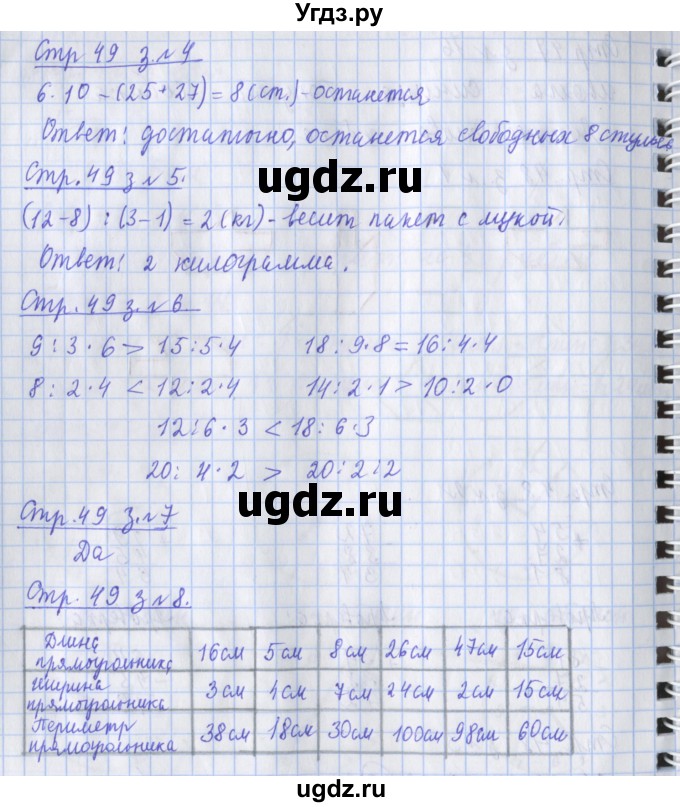 Угдз.ру
Стр 49 з. №4
6·10 - (25 + 27) = 8 (ст.) - останется
Ответ: достаточно, останется свободных 8 стульев
Стр. 49 з №5.
ugdz.ru
(12-8) : (3-1) = 2 (кг) - весит пакет с мукой.
Ответ: 2 килограмма.
Стр. 49 з. №6
9 : 3 · 6 > 15 : 5 · 4 18 : 9 · 8 = 16 : 4 · 4
8 : 2 · 4 < 12 : 2 · 4 14 : 2 · 1 > 10 : 2 · 0
12 : 6 · 3 < 18 : 6 · 3
20 : 4 · 2 > 20 : 2 : 2
ugdz.ru
Стр. 49 з. №7
Да
Стр. 49 з №8.
Длина прямоугольника 16см 5см 8см 26см 47см 15см
Ширина прямоугольника 3см 4см 7см 24см 2см 15см
Периметр прямоугольника 38см 18см 30см 100см 98см 60см
ugdz.ru